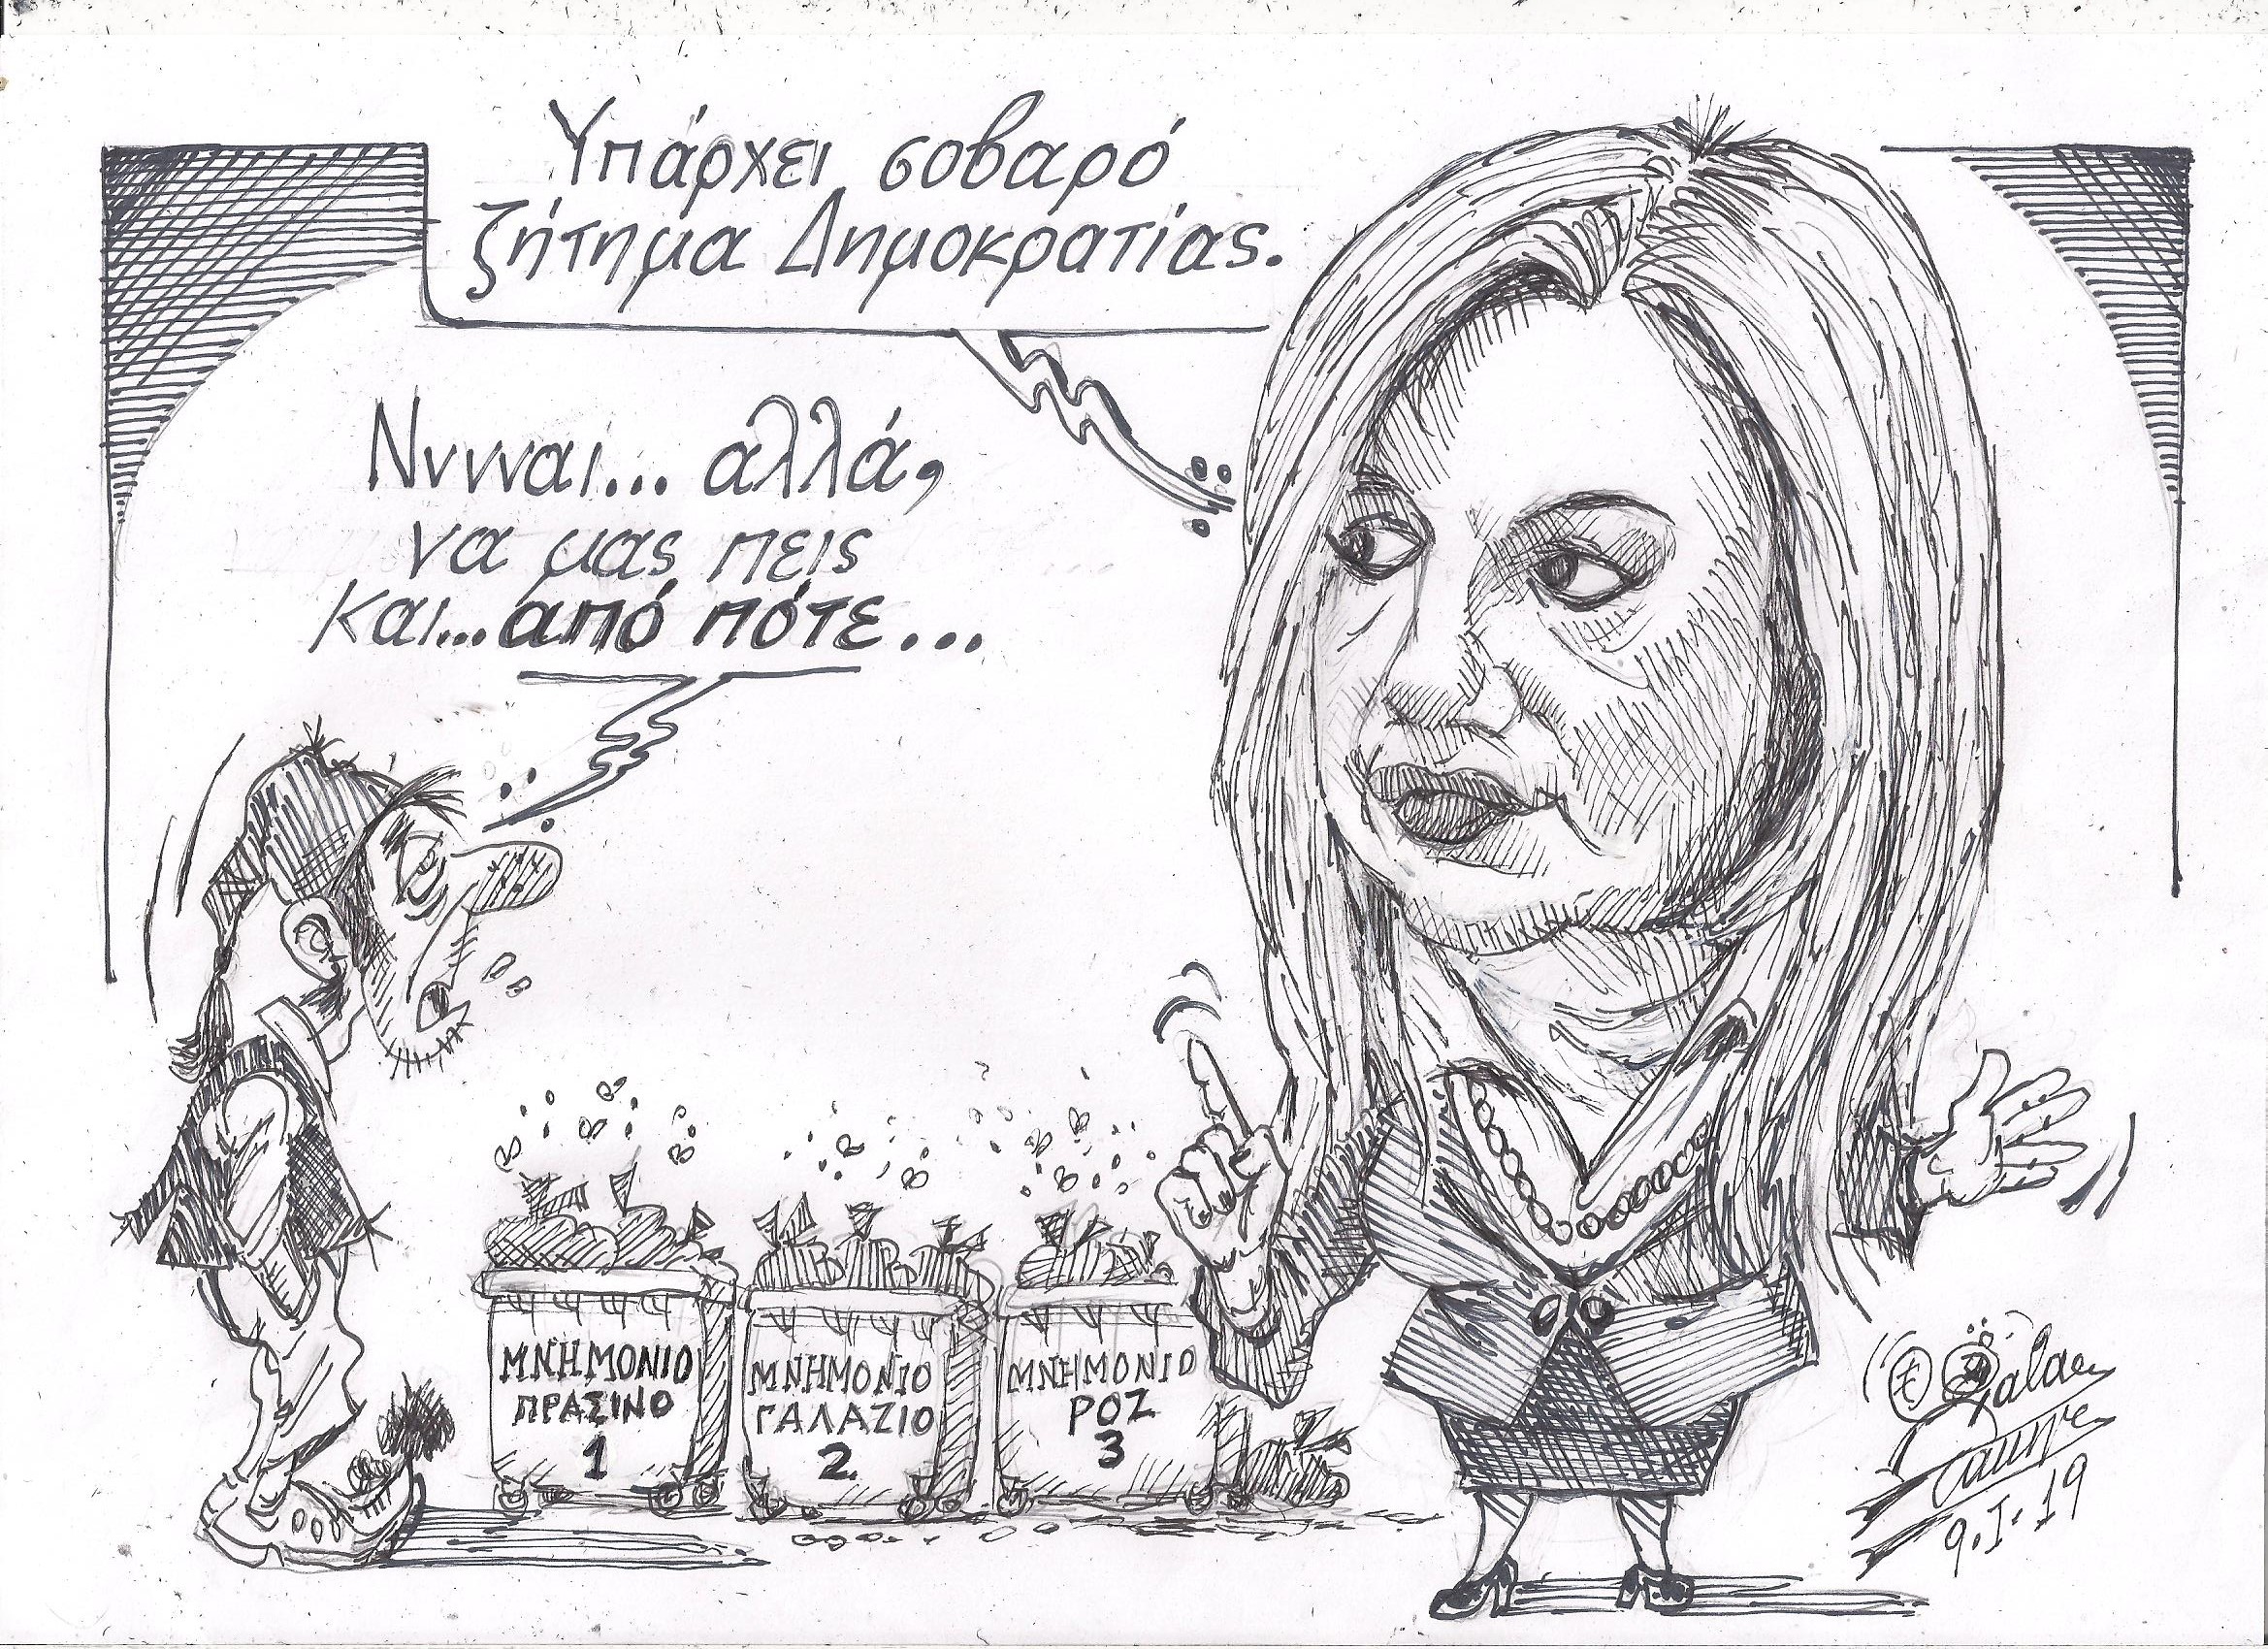 Υπάρχει σοβαρό
ζήτημα Δημοκρατίας.
Ννννναι... αλλά,
να μας πεις
και... από πότε...
ΜΝΗΜΟΝΙΟ
ΠΡΑΣΙΝΟ
1
ΜΝΗΜΟΝΙΟ
ΓΑΛΑΖΙΟ
2.
ΜΝΗΜΟΝΙΟ
ΡΟΖ
3
9.I.19